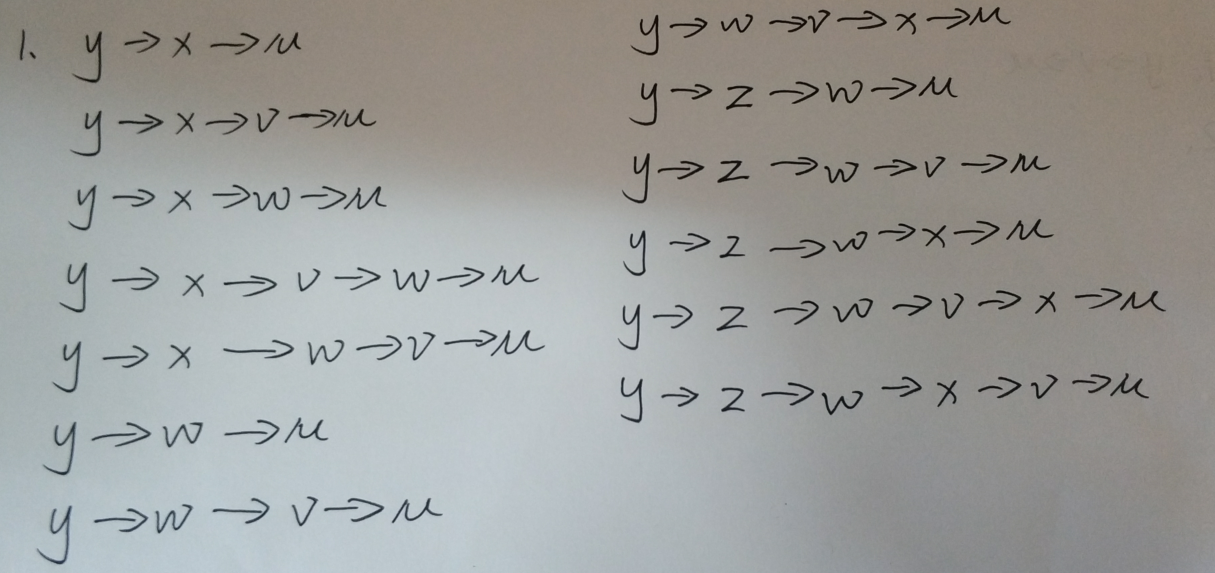 1. y → x → u
y → x → v → u
y → x → w → u
y → x → v → w → u
y → x → w → v → u
y → w → u
y → w → v → u
y → w → v → x → u
y → z → w → u
y → z → w → v → u
y → z → w → x → u
y → z → w → v → x → u
y → z → w → x → v → u